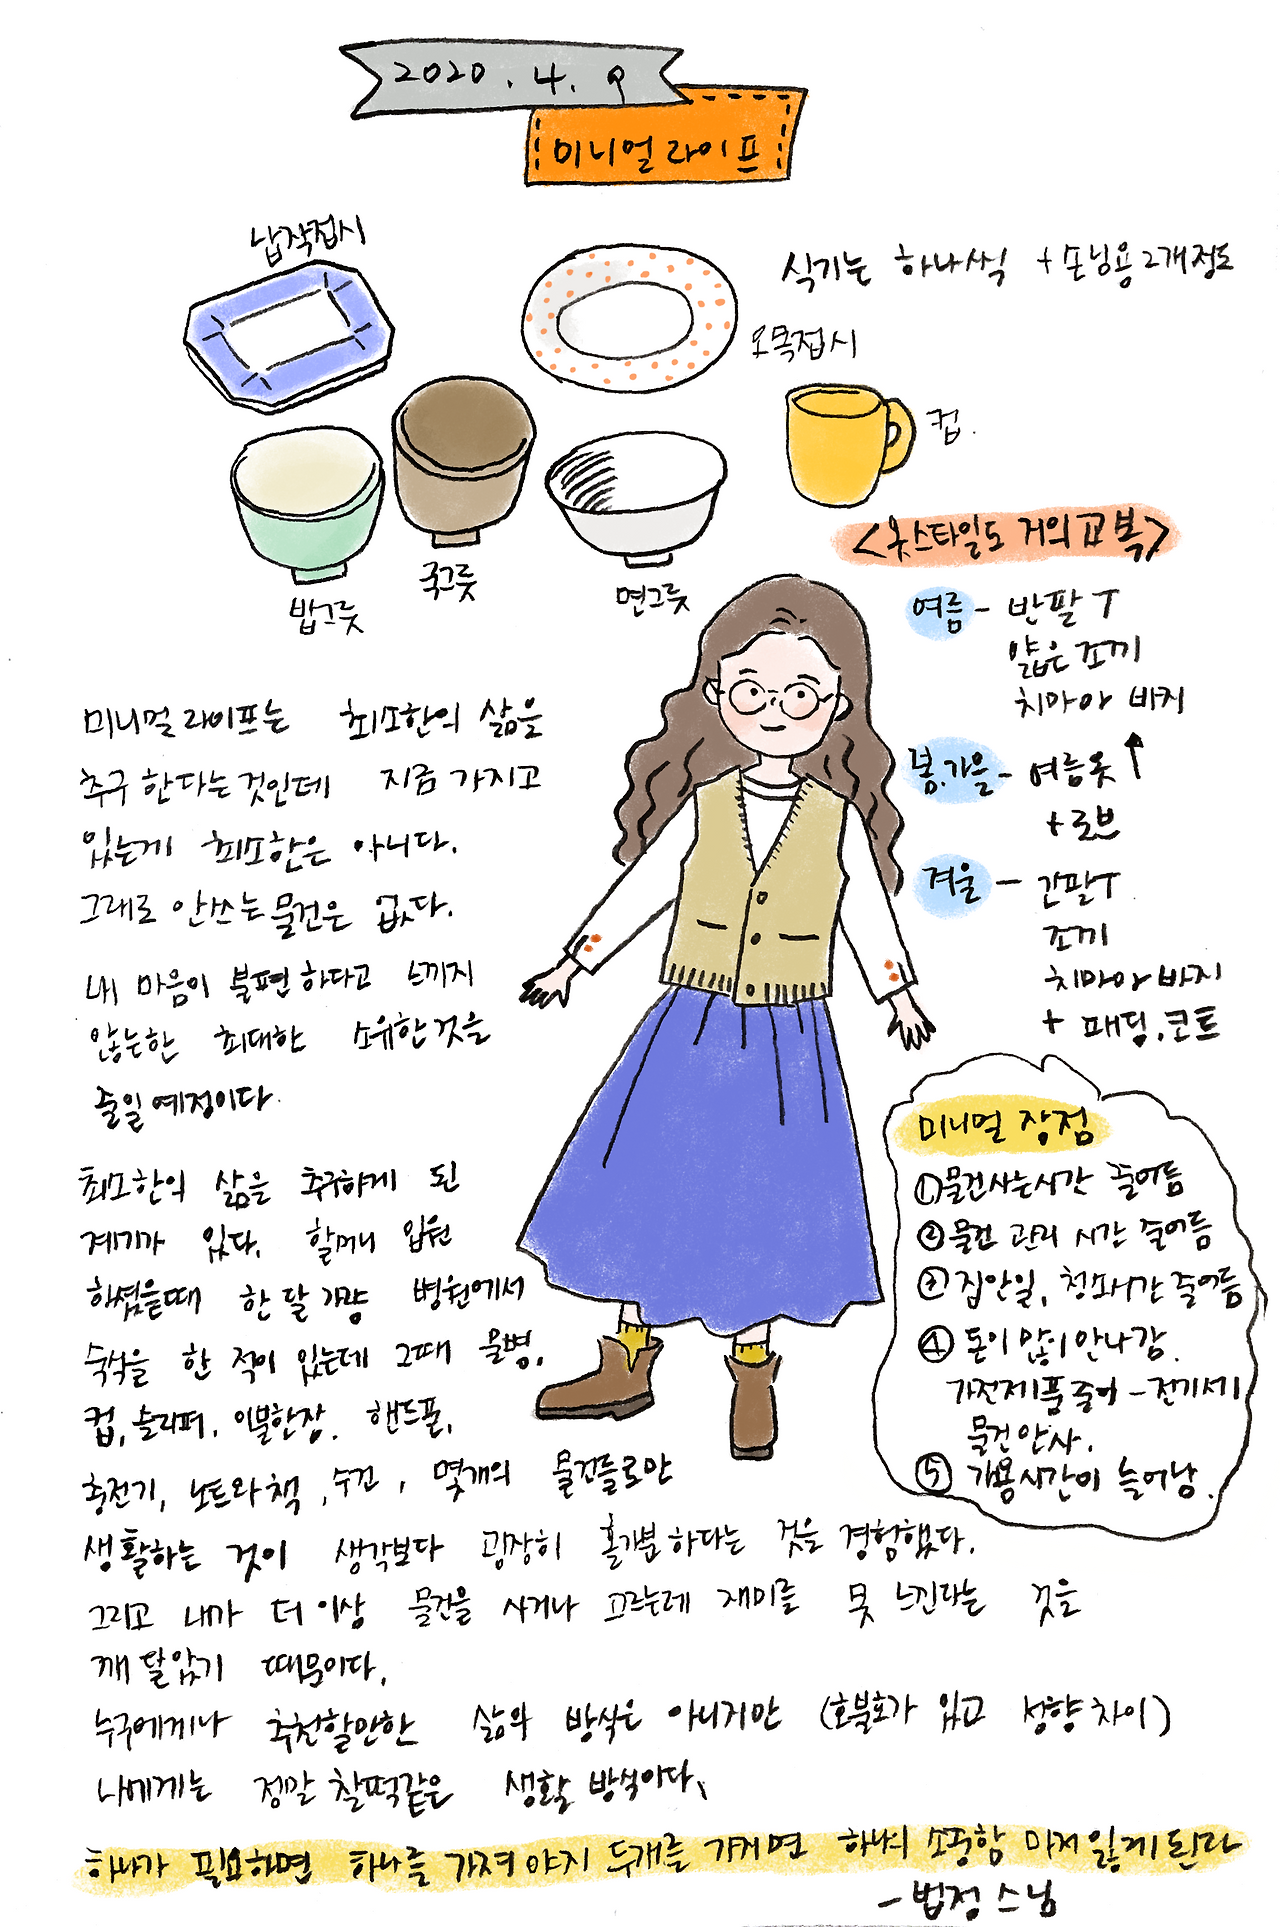 2020. 4. 9
미니멀 라이프
납작접시
식기는 하나씩 + 손님용 2개정도
오목접시
컵.
밥그릇
국그릇
면그릇
<옷스타일도 거의 교복>
여름 - 반팔 T
얇은 조끼
치마아 바지
봄,가을 - 여름옷 ↑
+ 로브
겨울 - 긴팔 T
조끼
치마아 바지
+ 패딩.코트
미니멀 라이프는 최소한의 삶을
추구 한다는 것인데 지금 가지고
있는게 최소한은 아니다.
그래도 안쓰는 물건은 없다.
내 마음이 불편하다고 느끼지
않는한 최대한 소유한 것을
줄일 예정이다.
최소한의 삶을 추구하게 된
계기가 있다. 할머니 입원
하셨을때 한달 가량 병원에서
숙식을 한 적이 있는데 그때 물병,
컵, 슬리퍼, 이불한장. 핸드폰,
충전기, 노트와 책, 수건, 몇개의 물건들로만
생활하는 것이 생각보다 굉장히 홀가분하다는 것을 경험했다.
그리고 내가 더 이상 물건을 사거나 고르는데 재미를 못 느낀다는 것을
깨달았기 때문이다.
누구에게나 추천할만한 삶의 방식은 아니지만 (호불호가 있고 성향차이)
나에게는 정말 찰떡같은 생활 방식이다.
미니멀 장점
① 물건사는시간 줄어듬
② 물건 관리 시간 줄어듬
③ 집안일, 청소시간 줄어듬
④ 돈이 많이 안나감.
가전제품 줄어 - 전기세↓
물건 안사.
⑤ 가용시간이 늘어남.
하나가 필요하면 하나를 가져야지 두개를 가지면 하나의 소중함 마저 잃게 된다
- 법정 스님